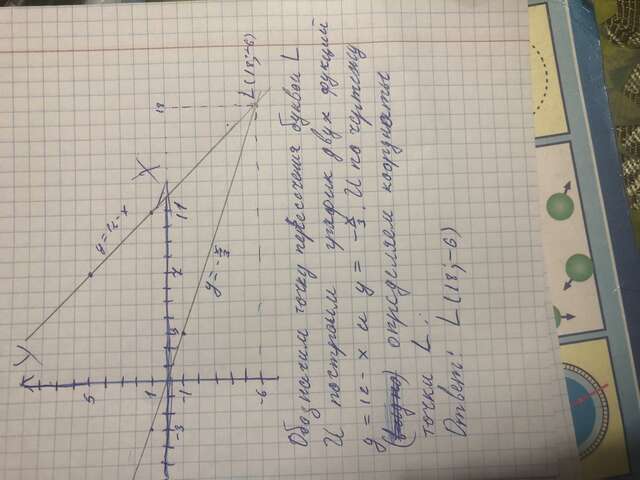 Y
y=12-x
5
X
18
1
-3
-1
3
7
11
y=-x/3
L(18;-6)
-6
Обозначим точку пересечения буквой L
И построим график двух фукций
y=12-x и y = -x/3. И по чертежу
(видно) определяем координаты
точки L.
Ответ: L(18;-6)